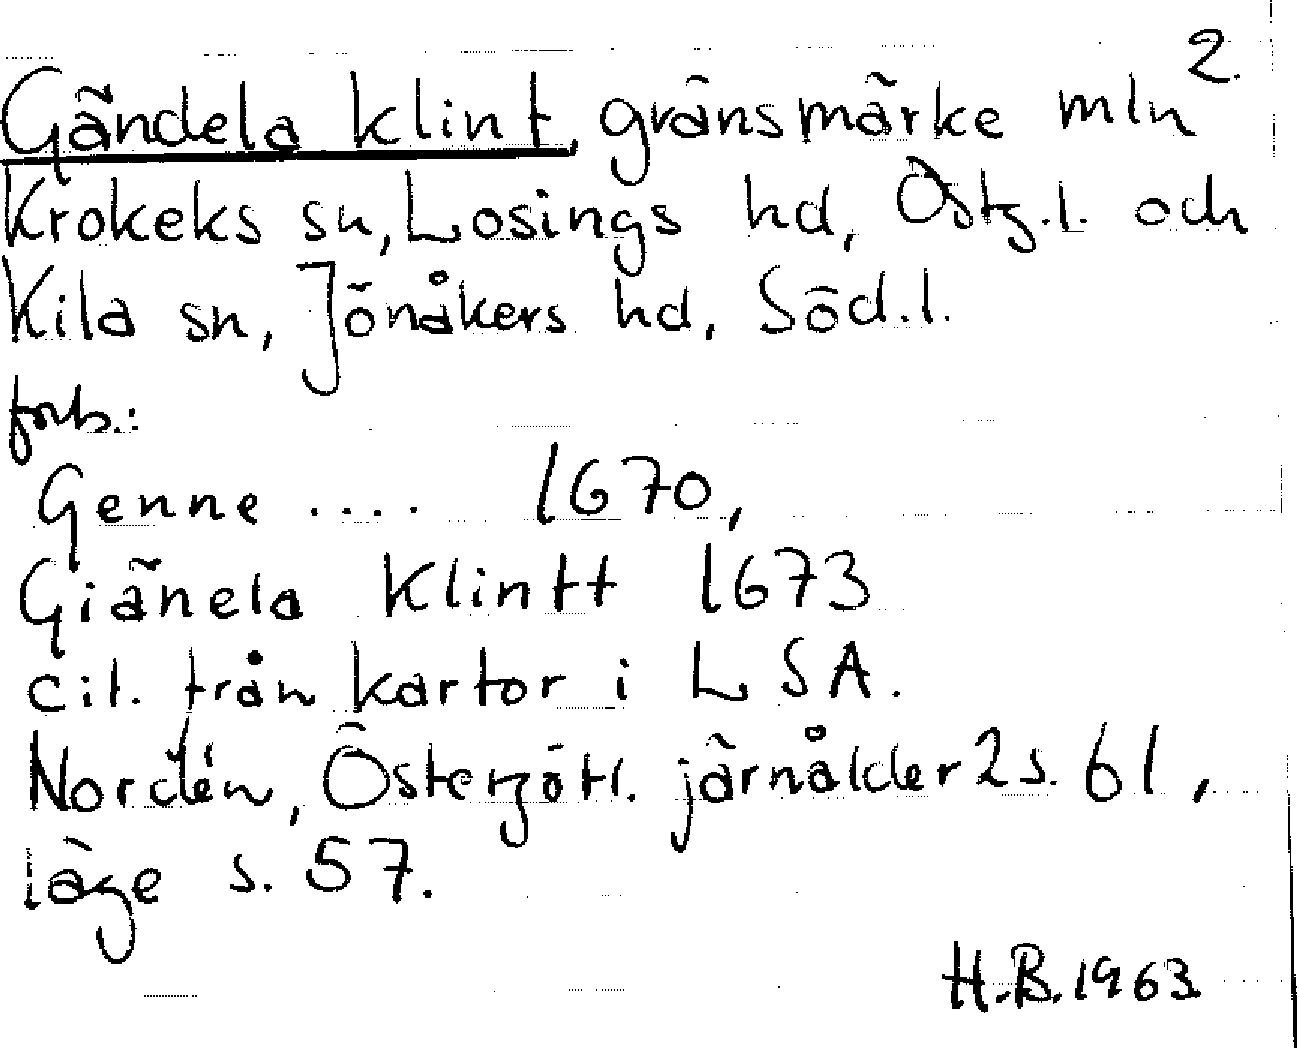 2.
Gändela klint, gränsmärke mln
Krokeks sn, Losings hd, Östg.l. och
Kila sn, Jönåkers hd, Söd.l.
forts.:
Genne .... 1670,
Giänela Klintt 1673
cit. från kartor i LSA.
Nordén, Östergötl. järnålder 2 s. 61,
läge s. 57.
H.B. 1963